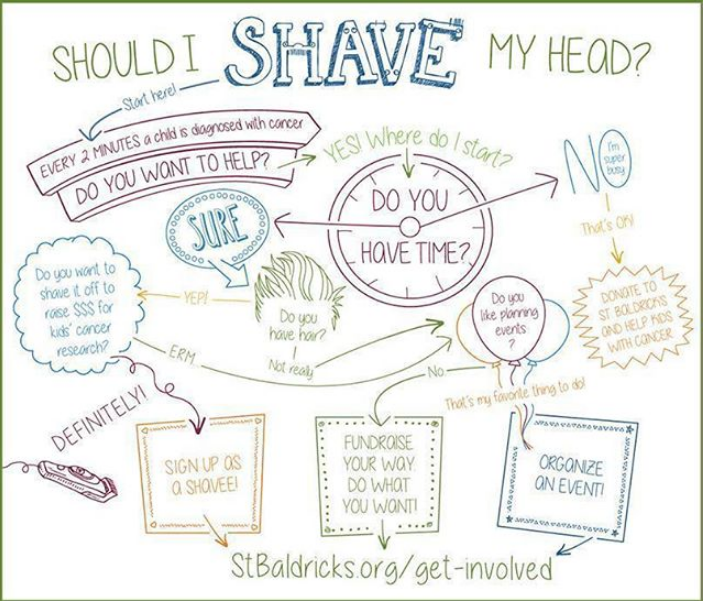 SHOULD I SHAVE MY HEAD?
Start here!
EVERY 2 MINUTES a child is diagnosed with cancer
DO YOU WANT TO HELP?
YES! Where do I start?
DO YOU
HAVE TIME?
NO
I'm
super
busy
That's OK!
DONATE TO
ST BALDRICKS
AND HELP KIDS
WITH CANCER
SURE
Do you
have hair?
YEP!
Not really
Do you want to
shave it off to
raise $$$ for
kids' cancer
research?
ERM...
DEFINITELY!
Do you
like planning
events
?
No
That's my favorite thing to do!
SIGN UP AS
A SHAVEE!
FUNDRAISE
YOUR WAY
DO WHAT
YOU WANT!
ORGANIZE
AN EVENT!
StBaldricks.org/get-involved